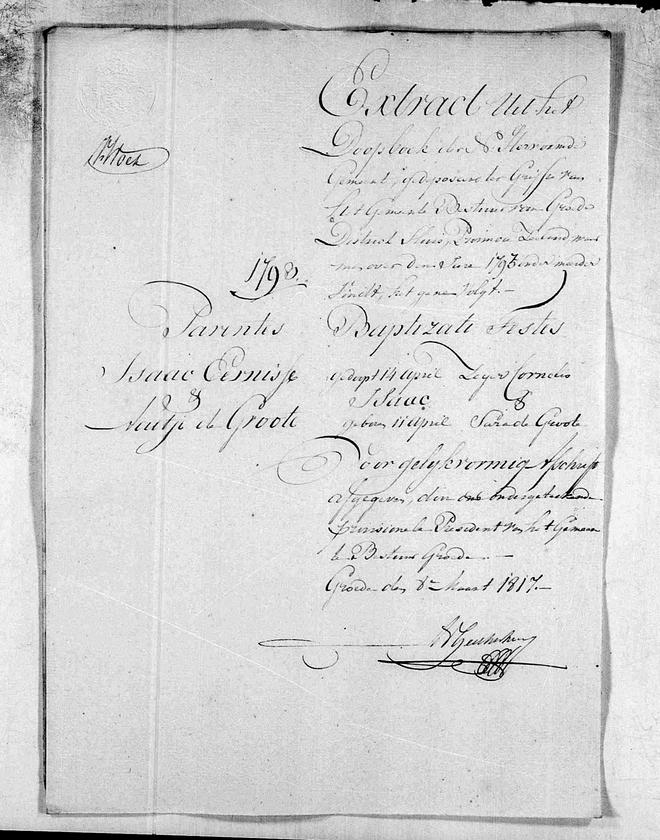 Extract Uit het
Doopboek der Hervormde
Gemeente, gedeponeerd ter Griffie van
het Gemeente Bestuur van Groede
District Sluis, Provincie Zeeland waar
in over den Jare 1798 onder meerder
vindt, het gene volgt.—
1798.
Parentes Baptizati Testes
Isaac Cernisse gedoopt 14 april Leyer Cornelis
& Isaac &
de Groote geboren 11 april Sara de Groote
Voor gelykvormig Afschrift
afgegeven, door ons ondergeteekende
provisionele President van het Gemeen
te Bestuur Groede.—
Groede den 8e Maart 1817.—